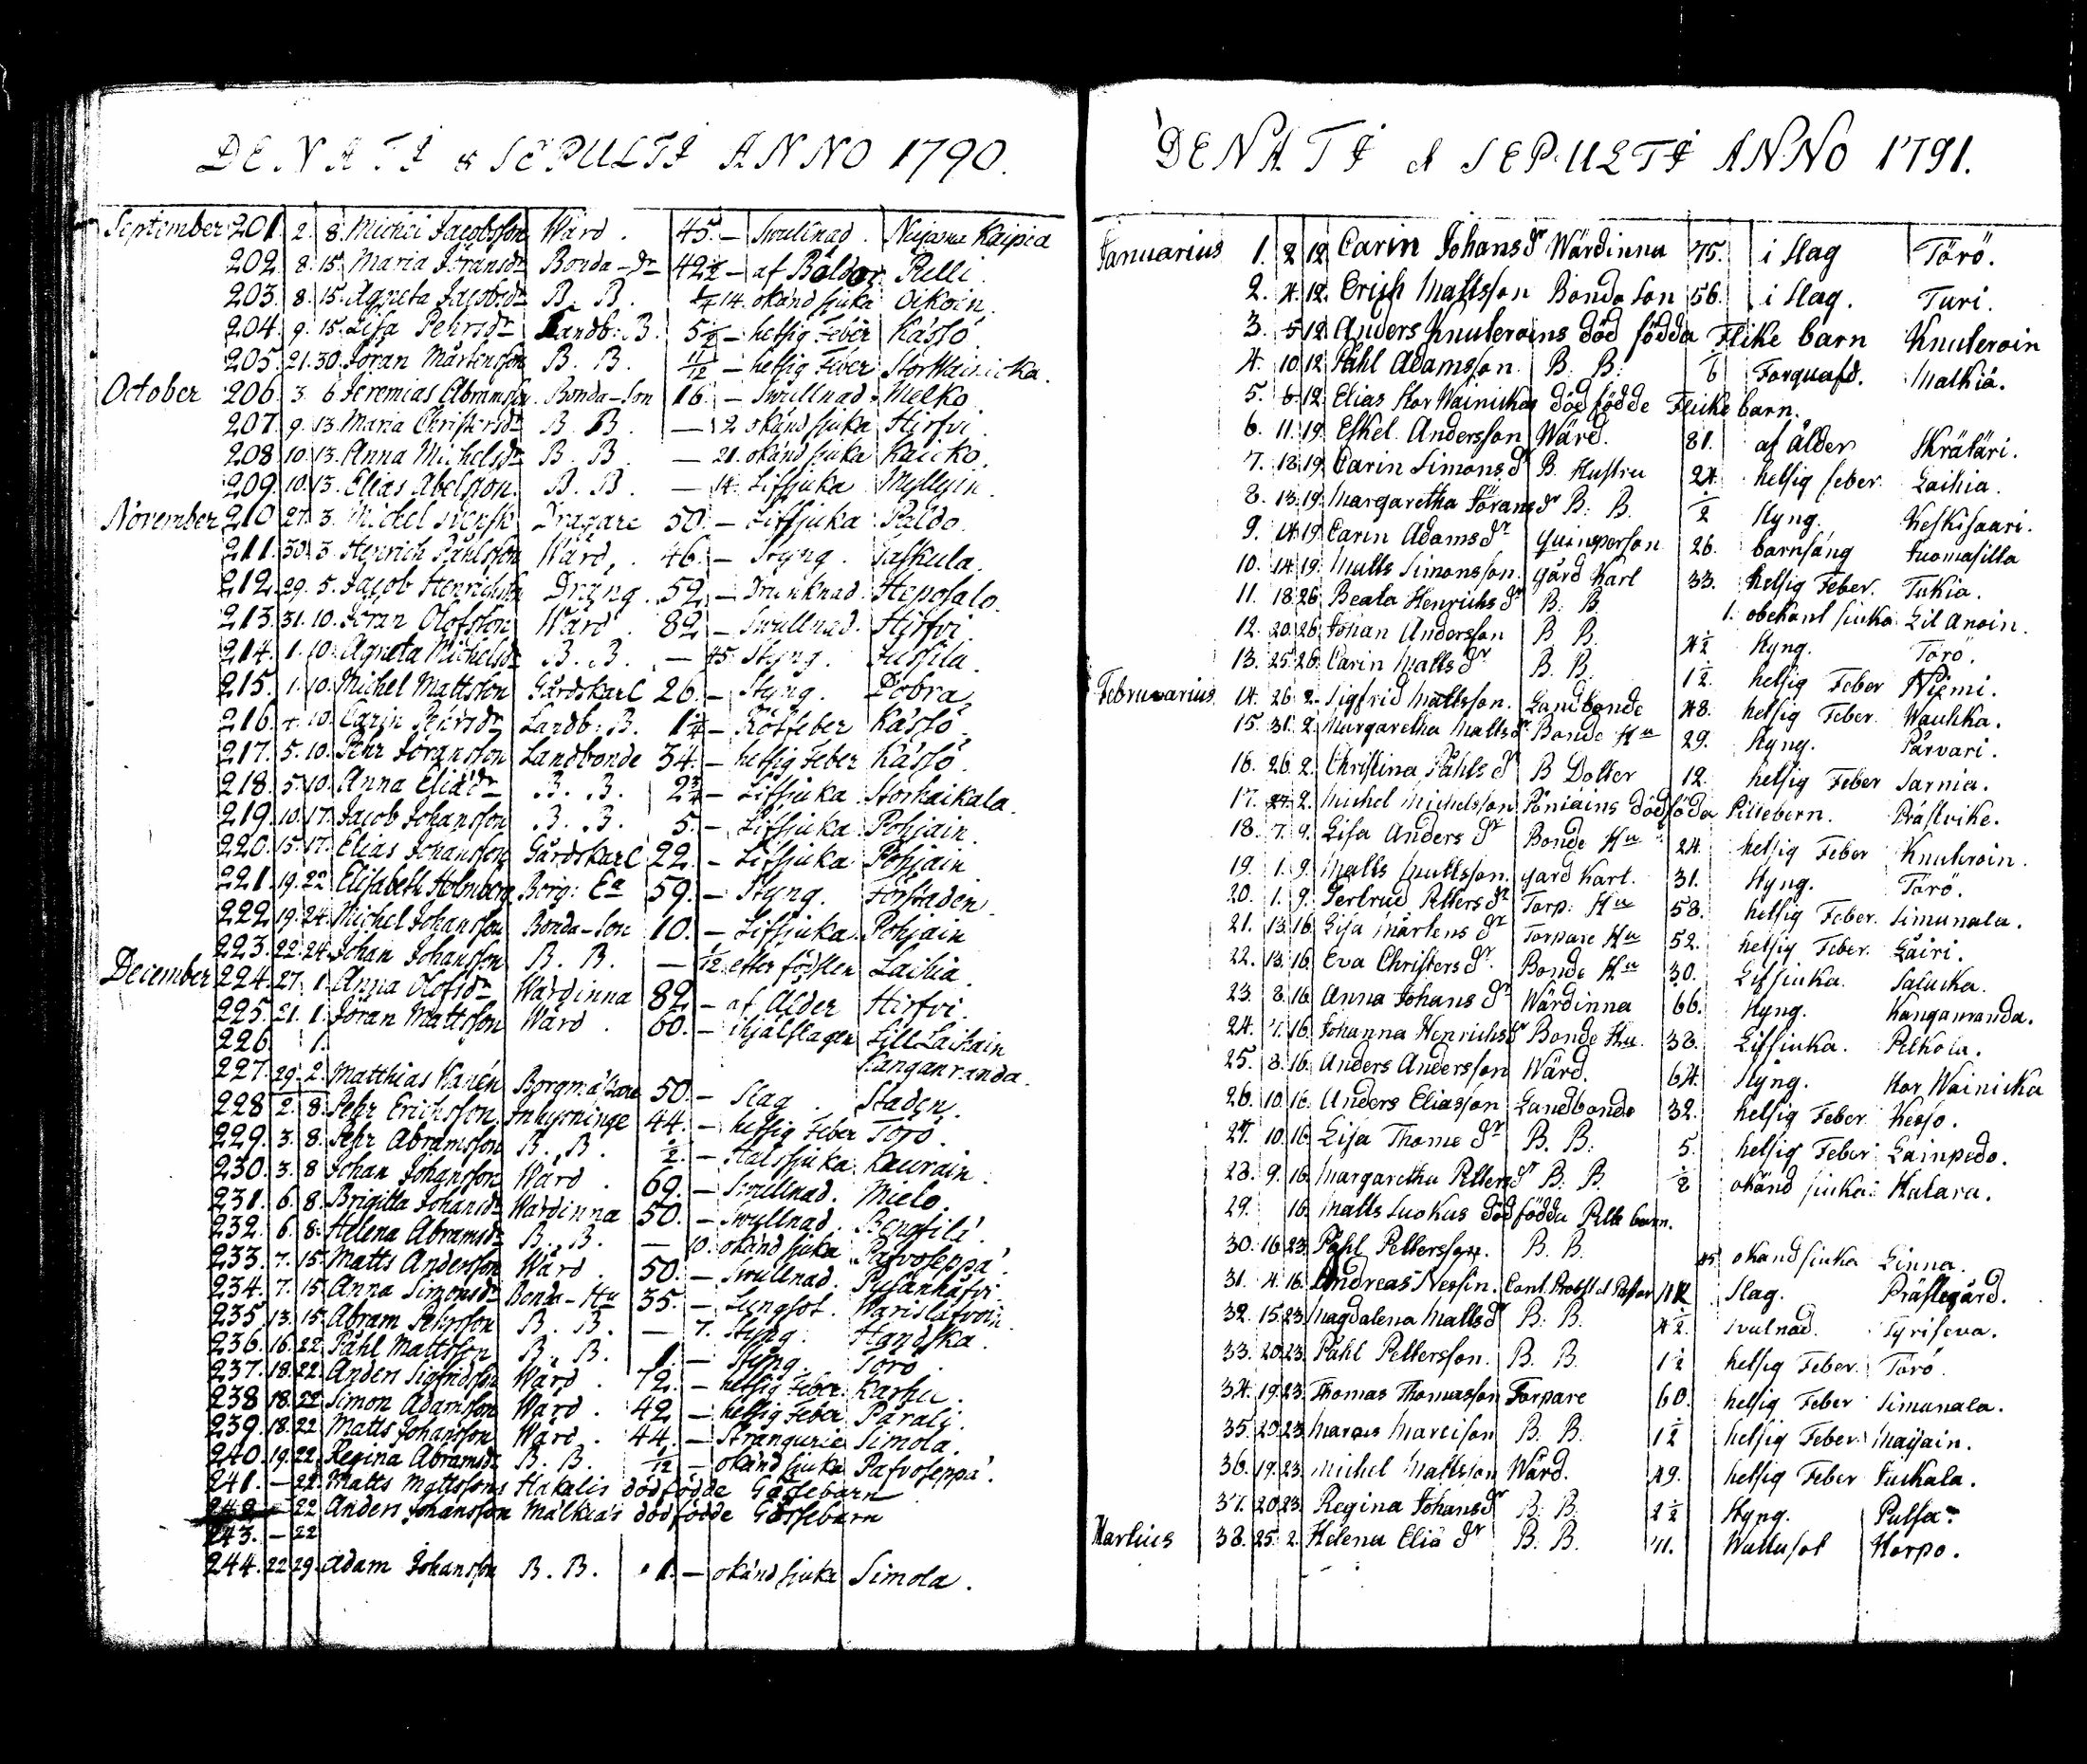 DENATI & SEPULTI ANNO 1790.
September 201. 2. 8. Michel Jacobsson Wärd. 45. – Swullnad. Kaipia
202. 8. 15. Maria Jöransdr Bonda-dr 42½ – af Båldar Pelli.
203. 8. 15. Agneta Jacobsdr B. B. 14. okänd sjuka Oikoin.
204. 9. 15. Lisa Pehrsdr Landb: B. 5½ – hetsig Feber Kässö.
205. 21. 30. Jöran Mårtensson B. B. 11/12 – hetsig Feber StorWainicka.
October 206. 3. 6. Jeremias Abramsson Bonda-Son 16. – Swullnad. Melko.
207. 9. 13. Maria Christersdr B. B. – 2. okänd sjuka Hirfvi.
208. 10. 13. Anna Michelsdr B. B. – 21. okänd sjuka Kaicko.
209. 10. 13. Elias Abelsson. B. B. – 14. Lifsjuka Myllyin.
November 210. 27. 3. Michel Svensk Dragare 50. – Lifsjuka Paldo.
211. 30. 3. Henrich Påhlsson Wärd. 46. – Styng. Taskula.
212. 29. 5. Jacob Henrichsson Dräng. 52. – Drunknad. Hepolalo.
213. 31. 10. Jöran Olofsson Wärd. 82 – Swullnad. Hirfvi.
214. 1. 10. Agneta Michelsdr B. B. – 45. Styng. Jussila.
215. 1. 10. Michel Mattsson Gårdskarl 26. – Styng. Pobra.
216. 4. 10. Carin Pehrsdr Landb: B. 1¼ – Rötfeber Kässö.
217. 5. 10. Pehr Jöransson Landbonde 34. – hetsig Feber Kässö.
218. 5. 10. Anna Eliædr B. B. 2¾ – Lifsjuka Storhaikala.
219. 10. 17. Jacob Johansson B. B. 5. – Lifsjuka Pohjain.
220. 15. 17. Elias Johansson Gårdskarl 22. – Lifsjuka Pohjain
221. 19. 22. Elisabeth Holmberg Borg: Ea 59. – Styng. Forstaden.
222. 19. 24. Michel Johansson Bonda-Son 10. – Lifsjuka Pohjain
223. 22. 24. Johan Johansson B. B. – 1/12 efter födslen Laihia.
December 224. 27. 1. Anna Olofsdr Wärdinna 82 – af Ålder Hirfvi.
225. 21. 1. Jöran Mattsson Wärd. 60. – ihjälslagen Lill Laihain
226. 1. Kanganranda.
227. 29. 2. Matthias Kanén Borgmästare 50. – Slag. Staden.
228. 2. 8. Pehr Erichsson. Inhysninge 44. – hetsig Feber Törö.
229. 3. 8. Pehr Abramsson B. B. ½. – Halssjuka Kaurain.
230. 3. 8. Johan Johansson Wärd. 69. – Swullnad. Mielo.
231. 6. 8. Brigitta Johansdr Wärdinna 50. – Swullnad. Bengtilä.
232. 6. 8. Helena Abramsdr B. B. – 10. okänd sjuka Pafvoseppä.
233. 7. 15. Matts Andersson Wärd. 50. – Swullnad.
234. 7. 15. Anna Simonsdr Bonda-Hu 35. – Lungsot.
235. 13. 15. Abram Pehrsson B. B. – 7. Styng. Handska.
236. 16. 22. Påhl Mattsson B. B. 1. – Styng. Törö.
237. 18. 22. Anders Sigfridsson Wärd. 72. – hetsig Feber. Karhu.
238. 18. 22. Simon Adamsson Wärd. 42. – hetsig Feber Pärali.
239. 18. 22. Matts Johansson Wärd. 44. – Strangurie Simola.
240. 19. 22. Regina Abramsdr B. B. 1/12 – okänd sjuka Pafvoseppä.
241. – 22. Matts Mattssons Hakalis dödfödde Gåssebarn
242. – 22. Anders Johansson Malkiäs dödfödde Gåssebarn
243. – 22
244. 22. 29. Adam Johansson B. B. 1. – okänd sjuka Simola.
DENATI & SEPULTI ANNO 1791.
Januarius 1. 2. 12. Carin Johansdr Wärdinna 75. i slag Törö.
2. 4. 12. Erich Mattsson Bonda Son 56. i slag. Turi.
3. 5. 12. Anders Knuteroins död födda Flike barn Knuteroin
4. 10. 12. Påhl Adamsson. B. B. 6 Forquafd. Malkiä.
5. 6. 12. Elias Stor Wainickas död födde Flicke barn.
6. 11. 19. Eskel Andersson Wärd. 81. af ålder Skrätäri.
7. 13. 19. Carin Simonsdr B. Hustru 24. hetsig feber. Laihia.
8. 13. 19. Margaretha Jöransdr B. B. ½ Styng. Keskisaari.
9. 14. 19. Carin Adamsdr Quinsperson 26. barnsäng Tuomasilla
10. 14. 19. Matts Simonsson. gård Karl 33. hetsig Feber. Tukia.
11. 18. 26. Beata Henrichsdr B. B. 1. obekant siuka Lil Anoin.
12. 20. 26. Johan Andersson B. B. 4½ Styng. Törö.
13. 25. 26. Carin Mattsdr B. B. 1½. hetsig Feber Niemi.
Februarius 14. 26. 2. Sigfrid Mattsson. Landbonde 48. hetsig Feber. Wauhka.
15. 31. 2. Margaretha Mattsdr Bonde Hu 29. Styng. Pärvari.
16. 26. 2. Christina Påhlsdr B Dotter 12. hetsig Feber Sarnia.
17. 27. 2. Michel Michelsson Pöniäins dödföda Piltebern. Prästvike.
18. 7. 9. Lisa Andersdr Bonde Hu 24. hetsig Feber Knuteroin.
19. 1. 9. Matts Mattsson. gård Karl. 31. Styng. Törö.
20. 1. 9. Gertrud Pettersdr Torp: Hu 58. hetsig Feber. Simunala.
21. 13. 16. Lisa Mårtensdr Torpare Hu 52. hetsig Feber. Läiri.
22. 13. 16. Eva Christersdr. Bonde Hu 30. Lifsiuka. Salucka.
23. 8. 16. Anna Johansdr Wärdinna 66. Styng. Kanganranda.
24. 7. 16. Johanna Henrichsdr Bonde Hu. 38. Lifsiuka. Pelkola.
25. 8. 16. Anders Andersson Wärd. 64. Styng. Stor Wainicka
26. 10. 16. Anders Eliasson Landbonde 32. hetsig Feber Kesso.
27. 10. 16. Lisa Thomædr B. B. 5. hetsig Feber Lainpedo.
28. 9. 16. Margaretha Pettersdr B. B. ½ okänd siuka Hatara.
29. 16. Matts Luckus dödfödda Pilte barn.
30. 16. 23. Påhl Pettersson. B. B. 45. okänd siuka Linna.
31. 4. 16. Andreas Nessin. Cont. Probst et Pastor Slag. Prästegård.
32. 15. 23. Magdalena Mattsdr B. B. 4½. svulnad. Tyriseva.
33. 20. 23. Påhl Pettersson. B. B. 1½ hetsig Feber. Törö.
34. 19. 23. Thomas Thomasson Torpare 60. hetsig Feber Simunala.
35. 20. 23. Marcus Marcison B. B. 1½ hetsig Feber. Mayain.
36. 19. 23. Michel Mattsson Wärd. 49. hetsig Feber Juckala.
37. 20. 23. Regina Johansdr B. B. 2½ Styng. Pulsa
Martius 38. 25. 2. Helena Eliædr B. B. 11. Wattusot Korpo.